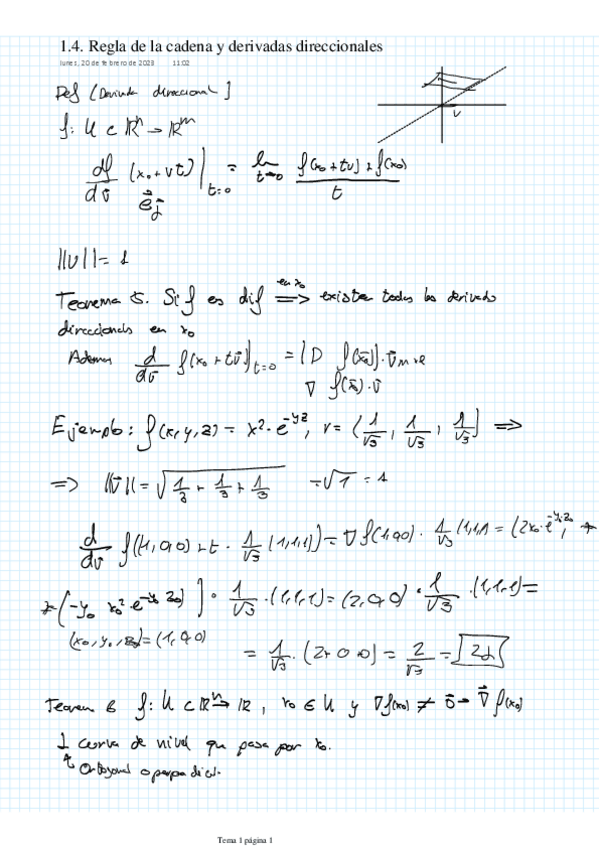 1.4. Regla de la cadena y derivadas direccionales
lunes, 20 de febrero de 2023 11:02
Def (Derivada direccional]
v
f: U ⊂ ℝⁿ → ℝᵐ
df/dv̄ (x₀ + vt) |t=0 = lim t→0 f(x₀ + tv) + f(x₀) / t
e⃗j
||v|| = 1
Teorema 5. Si f es dif en x₀ ⟹ existen todas las derivadas
direccionales en x₀
Ademas d/dv̄ f(x₀ + tv̄)|t=0 = [D f(x̄₀)] · v̄
∇ f(x̄) · v̄
Ejemplo: f(x,y,z) = x² · e^-yz, v = (1/√3, 1/√3, 1/√3] ⟹
⟹ ||v̄|| = √1/3 + 1/3 + 1/3 = √1 = 1
d/dv̄ f((1,0,0) + t · 1/√3 (1,1,1)) = ∇ f(1,0,0) · 1/√3 (1,1,1) = (2x₀ · e^-y₀z₀,
(-y₀ x₀² e^-y₀ z₀) ] · 1/√3 · (1,1,1) = (2,0,0) · 1/√3 · (1,1,1) =
(x₀, y₀, z₀) = (1,0,0)
= 1/√3 · (2+0+0) = 2/√3 =
Teorem 6 f: U ⊂ ℝⁿ → ℝ, x₀ ∈ U y ∇f(x₀) ≠ 0⃗ → ∇⃗ f(x₀)
⊥ curva de nivel que pasa por x₀.
Ortogonal o perpendicul.
Tema 1 página 1